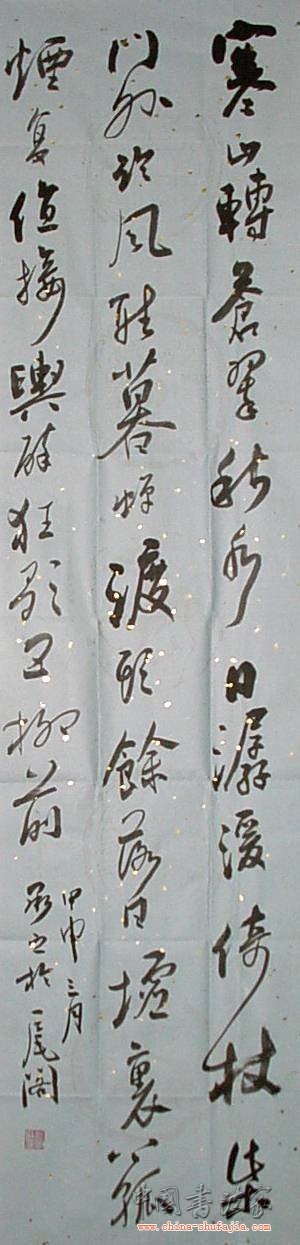 寒山轉蒼翠秋水日潺湲倚杖柴
門外臨風聽暮蟬渡頭餘落日墟裏上孤
煙复值接輿醉狂歌五柳前
甲申三月
於一尾閣
中國書法家
www.china-shufajia.com